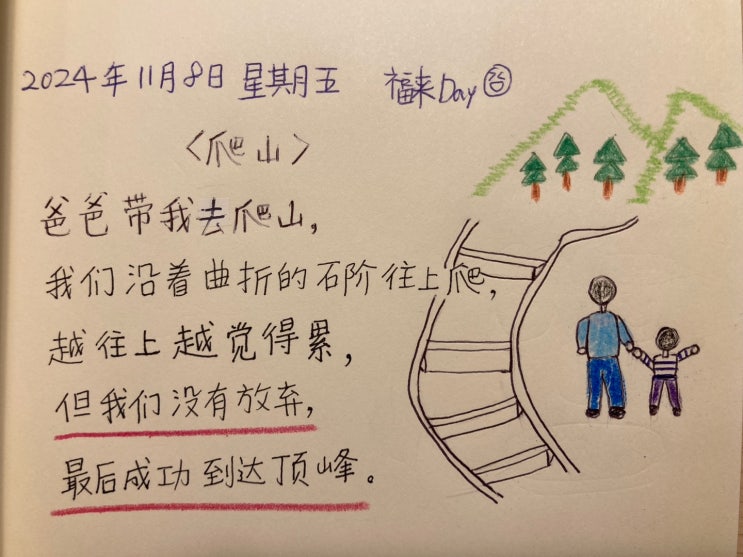 2024年11月8日 星期五 福来Day㊾
〈爬山〉
爸爸带我去爬山，
我们沿着曲折的石阶往上爬，
越往上越觉得累，
但我们没有放弃，
最后成功到达顶峰。